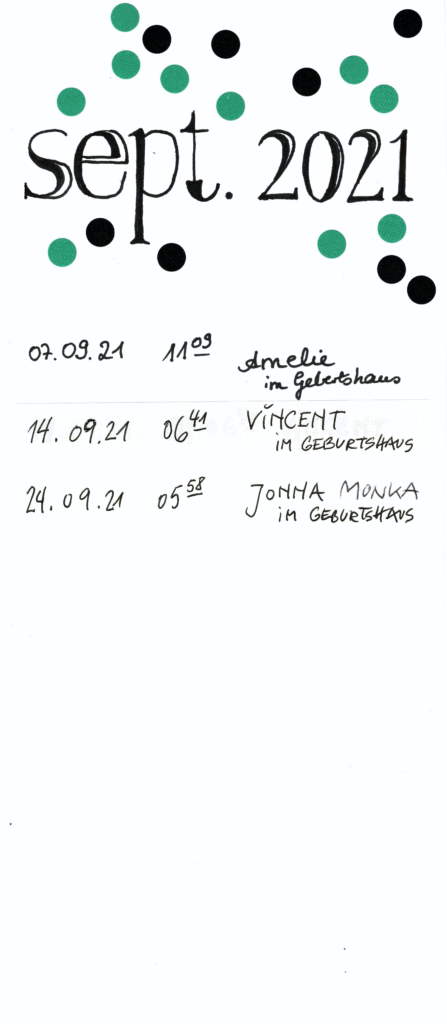 sept. 2021
07.09.21 11 09 Amelie
im Gebertshaus
14.09.21 06 41 VINCENT
IM GEBURTSHAUS
24.09.21 05 58 JONNA MONKA
IM GEBURTSHAUS